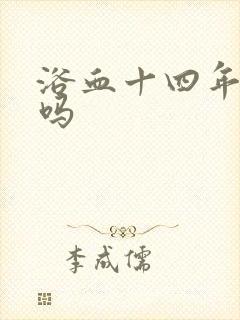 浴血十四年
吗
李成儒